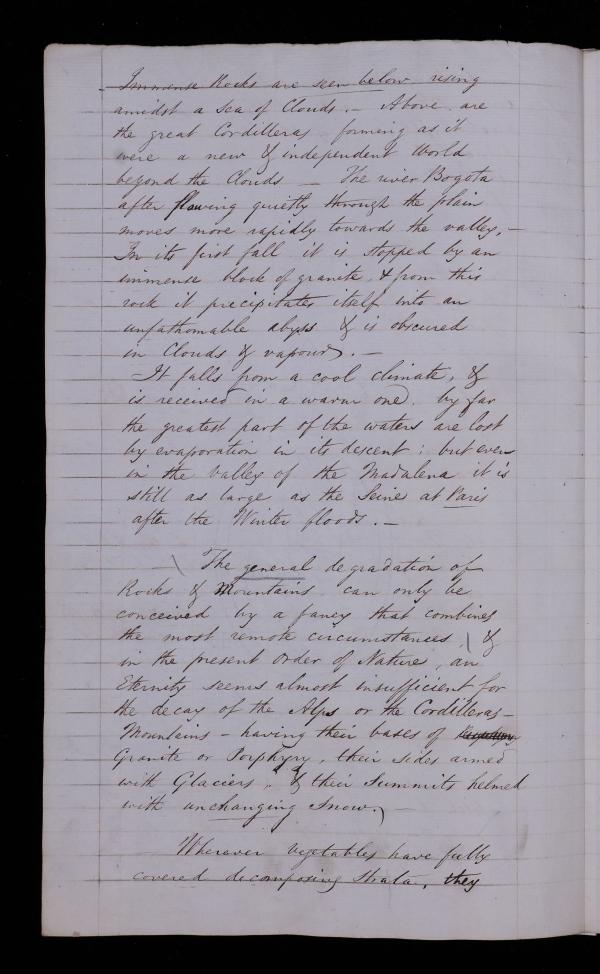 Immense Rocks are seen below rising
amidst a Sea of Clouds. - Above are
the great Cordilleras forming as it
were a new & independent World
beyond the Clouds - The river Bogota
after flowing quietly through the plain
moves more rapidly towards the valley, -
In its first fall it is stopped by an
immense block of granite, & from this
rock it precipitates itself into an
unfathomable abyss & is obscured
in Clouds & vapours. -
It falls from a cool climate, &
is received in a warm one. by far
the greatest part of the waters are lost
by evaporation in its descent: but even
in the Valley of the Madalena it is
still as large as the Seine at Paris
after the Winter floods. -
\ The general degradation of
Rocks & Mountains can only be
conceived by a fancy that combines
the most remote circumstances, \ &
in the present Order of Nature, an
Eternity seems almost insufficient for
the decay of the Alps or the Cordilleras -
Mountains - having their bases of
Granite or Porphyry, their sides armed
with Glaciers, & their Summits helmed
with unchanging Snow. -
Wherever vegetables have fully
covered decomposing Strata, they